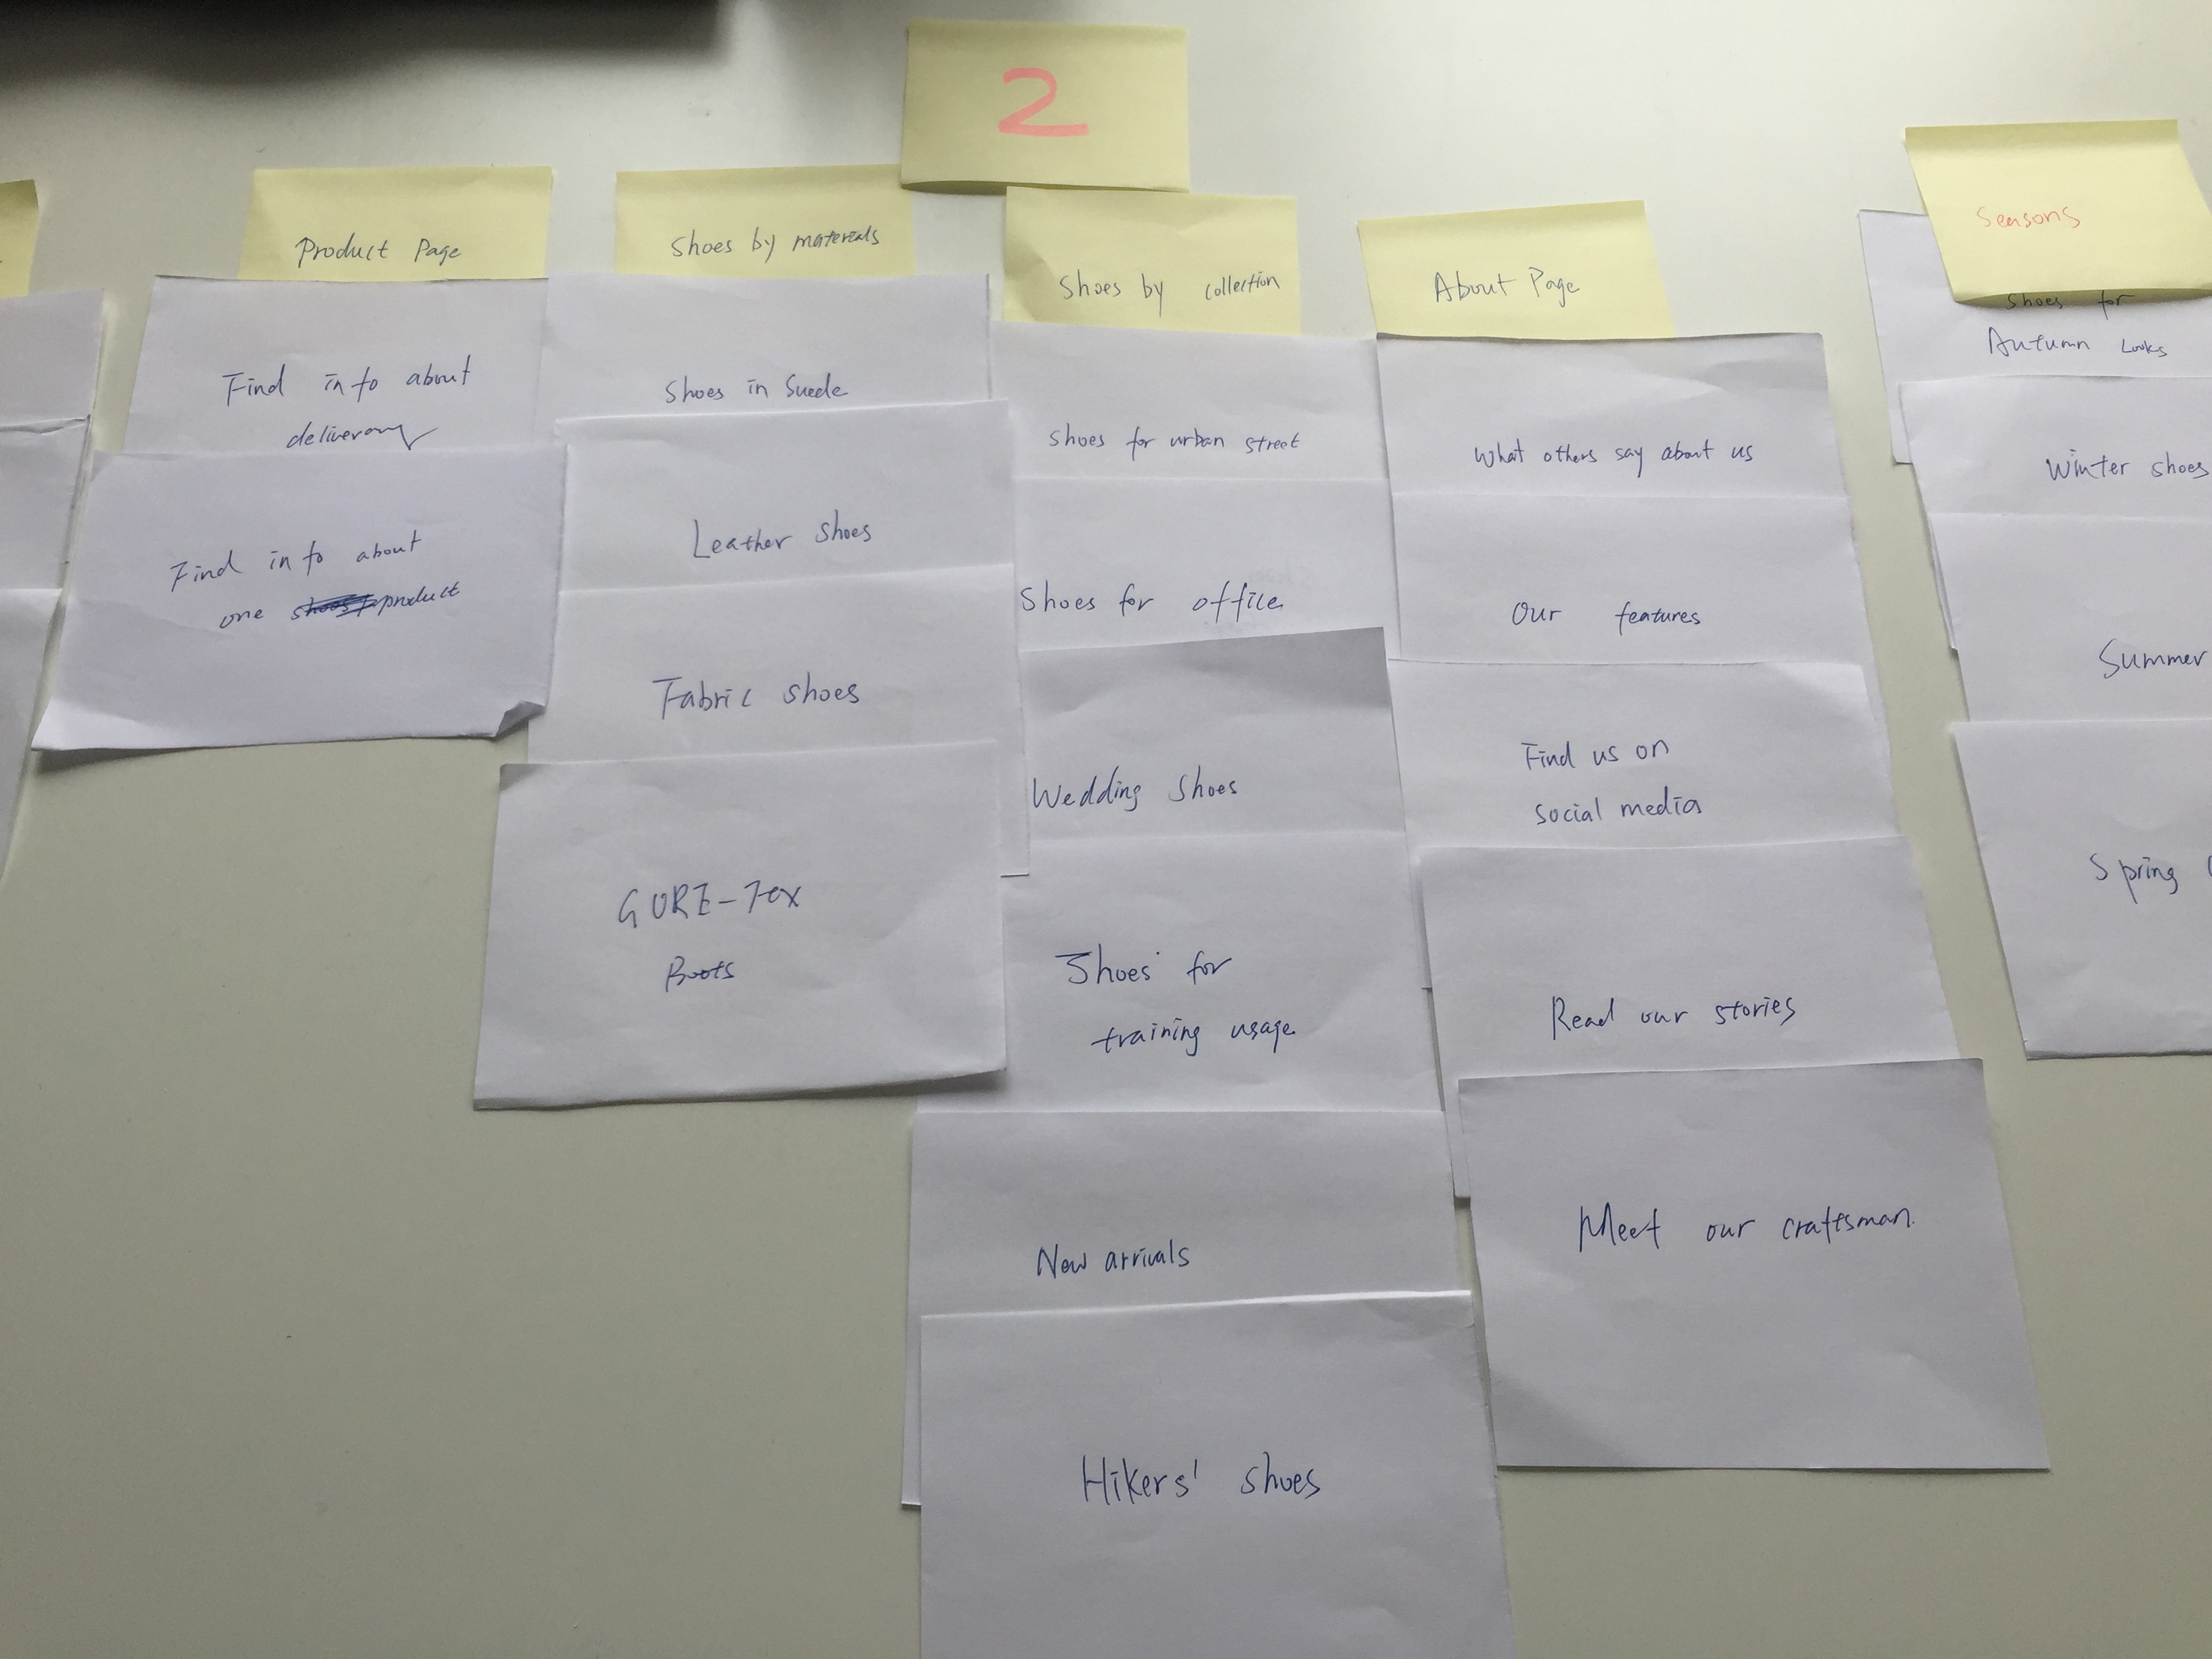 2
Product Page
Find info about
delivery
Find info about
one product
Shoes by materials
Shoes in Suede
Leather shoes
Fabric shoes
GORE-Tex
Boots
Shoes by collection
Shoes for urban street
Shoes for office
Wedding shoes
Shoes for
training usage
New arrivals
Hikers' shoes
About Page
What others say about us
Our features
Find us on
social media
Read our stories
Meet our craftsman.
Seasons
Shoes for
Autumn Looks
Winter shoes
Summer
Spring